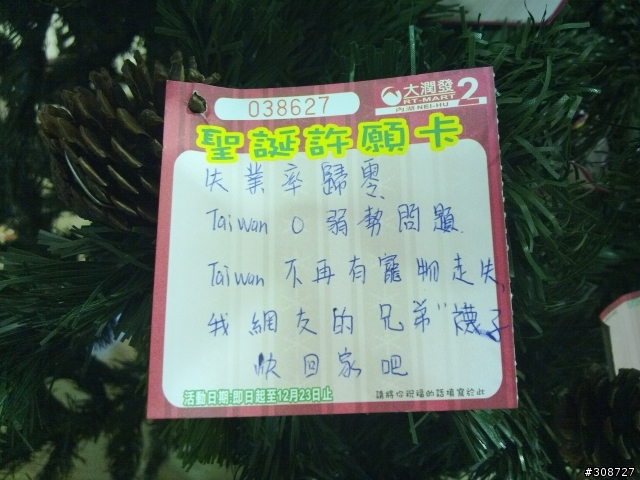 038627
大潤發
RT-MART
內湖 NEI-HU
2
聖誕許願卡
失業率歸零
Taiwan 0 弱勢問題
Taiwan 不再有寵物走失
我網友的兄弟"襪子
快回家吧
活動日期:即日起至12月23日止
請將你祝福的話填寫於此
#308727